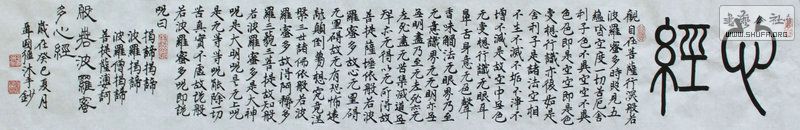 心經
觀自在菩薩行深般若
波羅蜜多時照見五
蘊皆空度一切苦厄舍
利子色不異空空不異
色色即是空空即是色
受想行識亦復如是
舍利子是諸法空相
不生不滅不垢不淨不
增不減是故空中无色
无受想行識无眼耳
鼻舌身意无色聲
香味觸法无眼界乃至
无意識界无无明亦
无无明盡乃至无老死
亦无老死盡无苦集滅道
无智亦无得以无所得故
菩提薩埵依般若波
羅蜜多故心无罣碍
无罣碍故无有恐怖遠
離顛倒夢想究竟涅
槃三世諸佛依般若波
羅蜜多故得阿耨多
羅三藐三菩提故知般
若波羅蜜多是大神
咒是大明咒是无上咒
是无等等咒能除一切
苦真實不虛故說般
若波羅蜜多咒即說
咒曰
揭諦揭諦
波羅揭諦
波羅僧揭諦
菩提薩婆訶
般若波羅蜜
多心經
歲在癸巳夏月
WWW.SHUFA.ORG